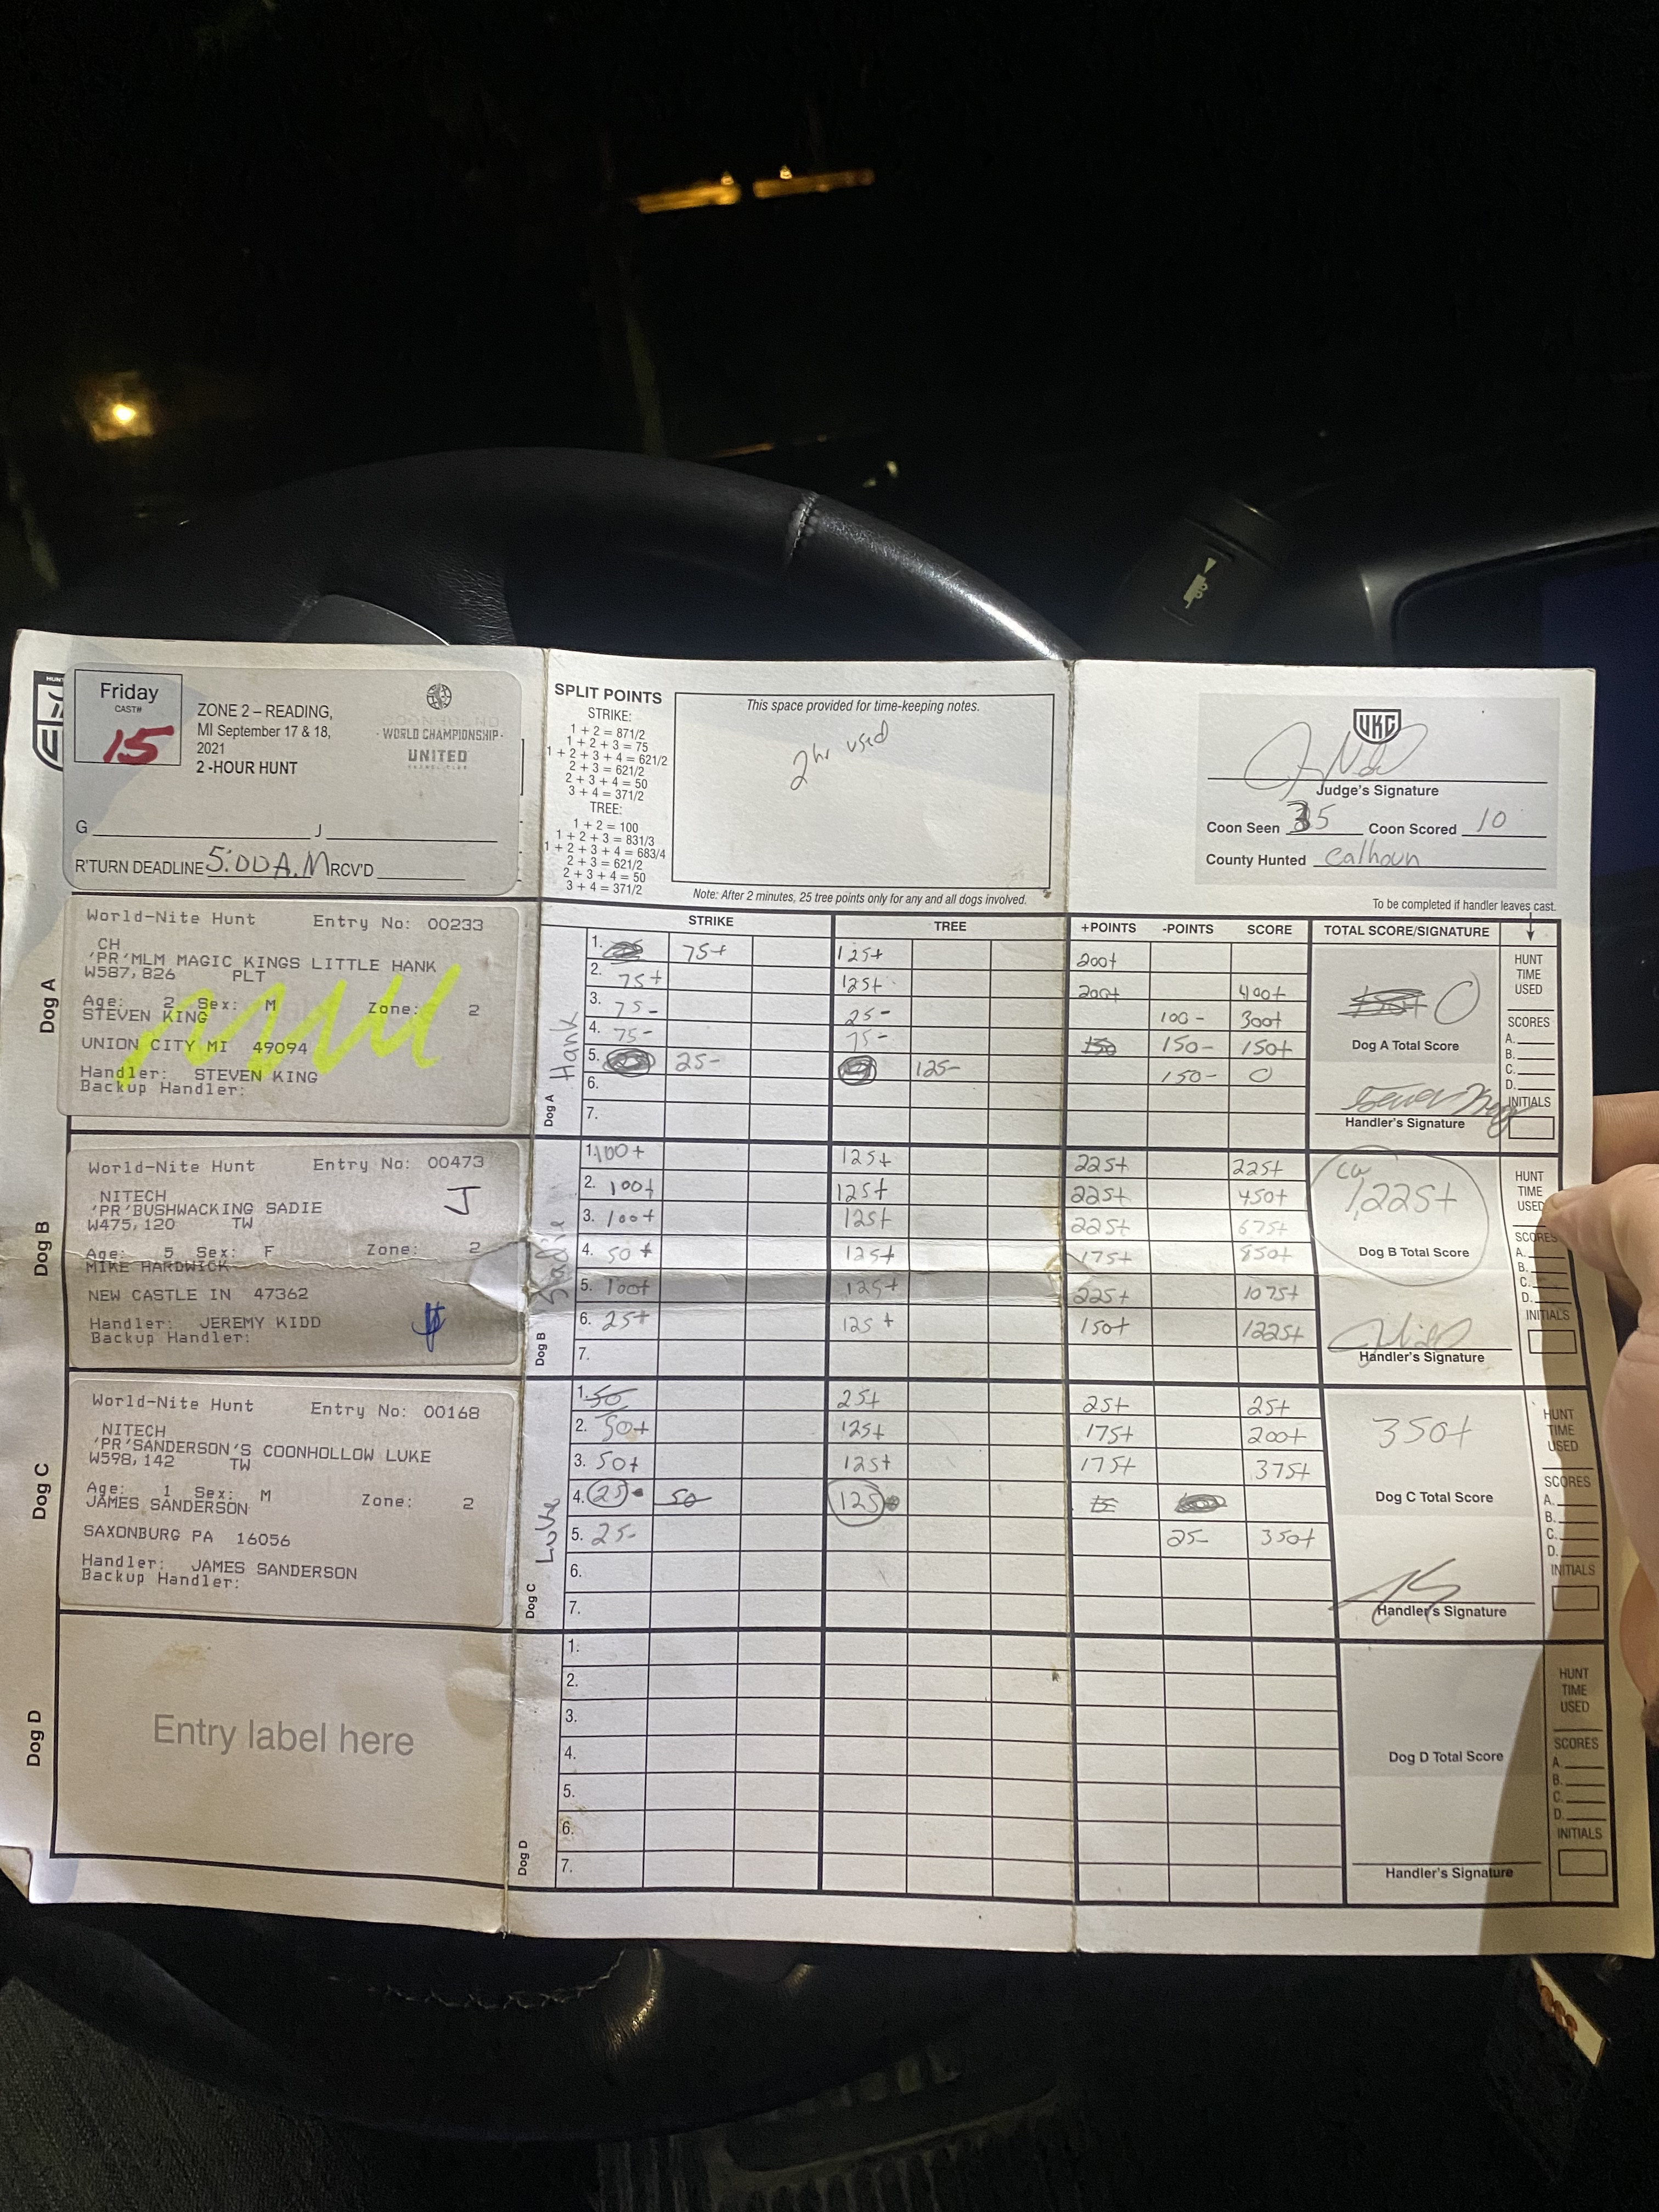 Friday
CAST#
15
ZONE 2 – READING,
MI September 17 & 18,
2021
2 -HOUR HUNT
· WORLD CHAMPIONSHIP ·
UNITED
G J
R'TURN DEADLINE 5:00 A.M RCV'D
SPLIT POINTS
STRIKE:
1 + 2 = 871/2
1 + 2 + 3 = 75
1 + 2 + 3 + 4 = 621/2
2 + 3 = 621/2
2 + 3 + 4 = 50
3 + 4 = 371/2
TREE:
1 + 2 = 100
1 + 2 + 3 = 831/3
1 + 2 + 3 + 4 = 683/4
2 + 3 = 621/2
2 + 3 + 4 = 50
3 + 4 = 371/2
This space provided for time-keeping notes.
2 hr used
Note: After 2 minutes, 25 tree points only for any and all dogs involved.
UKC
Judge's Signature
Coon Seen 35 Coon Scored 10
County Hunted Calhoun
To be completed if handler leaves cast.
STRIKE TREE +POINTS -POINTS SCORE TOTAL SCORE/SIGNATURE
Dog A
World-Nite Hunt Entry No: 00233
CH
'PR'MLM MAGIC KINGS LITTLE HANK
W587,826 PLT
Age: 2 Sex: M Zone: 2
STEVEN KING
UNION CITY MI 49094
Handler: STEVEN KING
Backup Handler:
Dog A Hank
1. 75+ 125+ 200+
2. 75+ 125+ 200+ 400+
3. 75- 25- 100- 300+
4. 75- 75- 150 150- 150+
5. 25- 125- 150- 0
6.
7.
0
Dog A Total Score
Steven King
Handler's Signature
HUNT
TIME
USED
SCORES
A.
B.
C.
D.
INITIALS
Dog B
World-Nite Hunt Entry No: 00473
NITECH
'PR'BUSHWACKING SADIE J
W475,120 TW
Age: 5 Sex: F Zone: 2
MIKE HARDWICK
NEW CASTLE IN 47362
Handler: JEREMY KIDD
Backup Handler:
$
Dog B Sadie
1. 100+ 125+ 225+ 225+
2. 100+ 125+ 225+ 450+
3. 100+ 125+ 225+ 675+
4. 50+ 125+ 175+ 850+
5. 100+ 125+ 225+ 1075+
6. 25+ 125+ 150+ 1225+
7.
CW
1,225+
Dog B Total Score
Handler's Signature
HUNT
TIME
USED
SCORES
A.
B.
C.
D.
INITIALS
Dog C
World-Nite Hunt Entry No: 00168
NITECH
'PR'SANDERSON'S COONHOLLOW LUKE
W598,142 TW
Age: 1 Sex: M Zone: 2
JAMES SANDERSON
SAXONBURG PA 16056
Handler: JAMES SANDERSON
Backup Handler:
Dog C Luke
1. 50 25+ 25+ 25+
2. 50+ 125+ 175+ 200+
3. 50+ 125+ 175+ 375+
4. 25 50 125
5. 25- 25- 350+
6.
7.
350+
Dog C Total Score
Handler's Signature
HUNT
TIME
USED
SCORES
A.
B.
C.
D.
INITIALS
Dog D
Entry label here
Dog D
1.
2.
3.
4.
5.
6.
7.
Dog D Total Score
Handler's Signature
HUNT
TIME
USED
SCORES
A.
B.
C.
D.
INITIALS